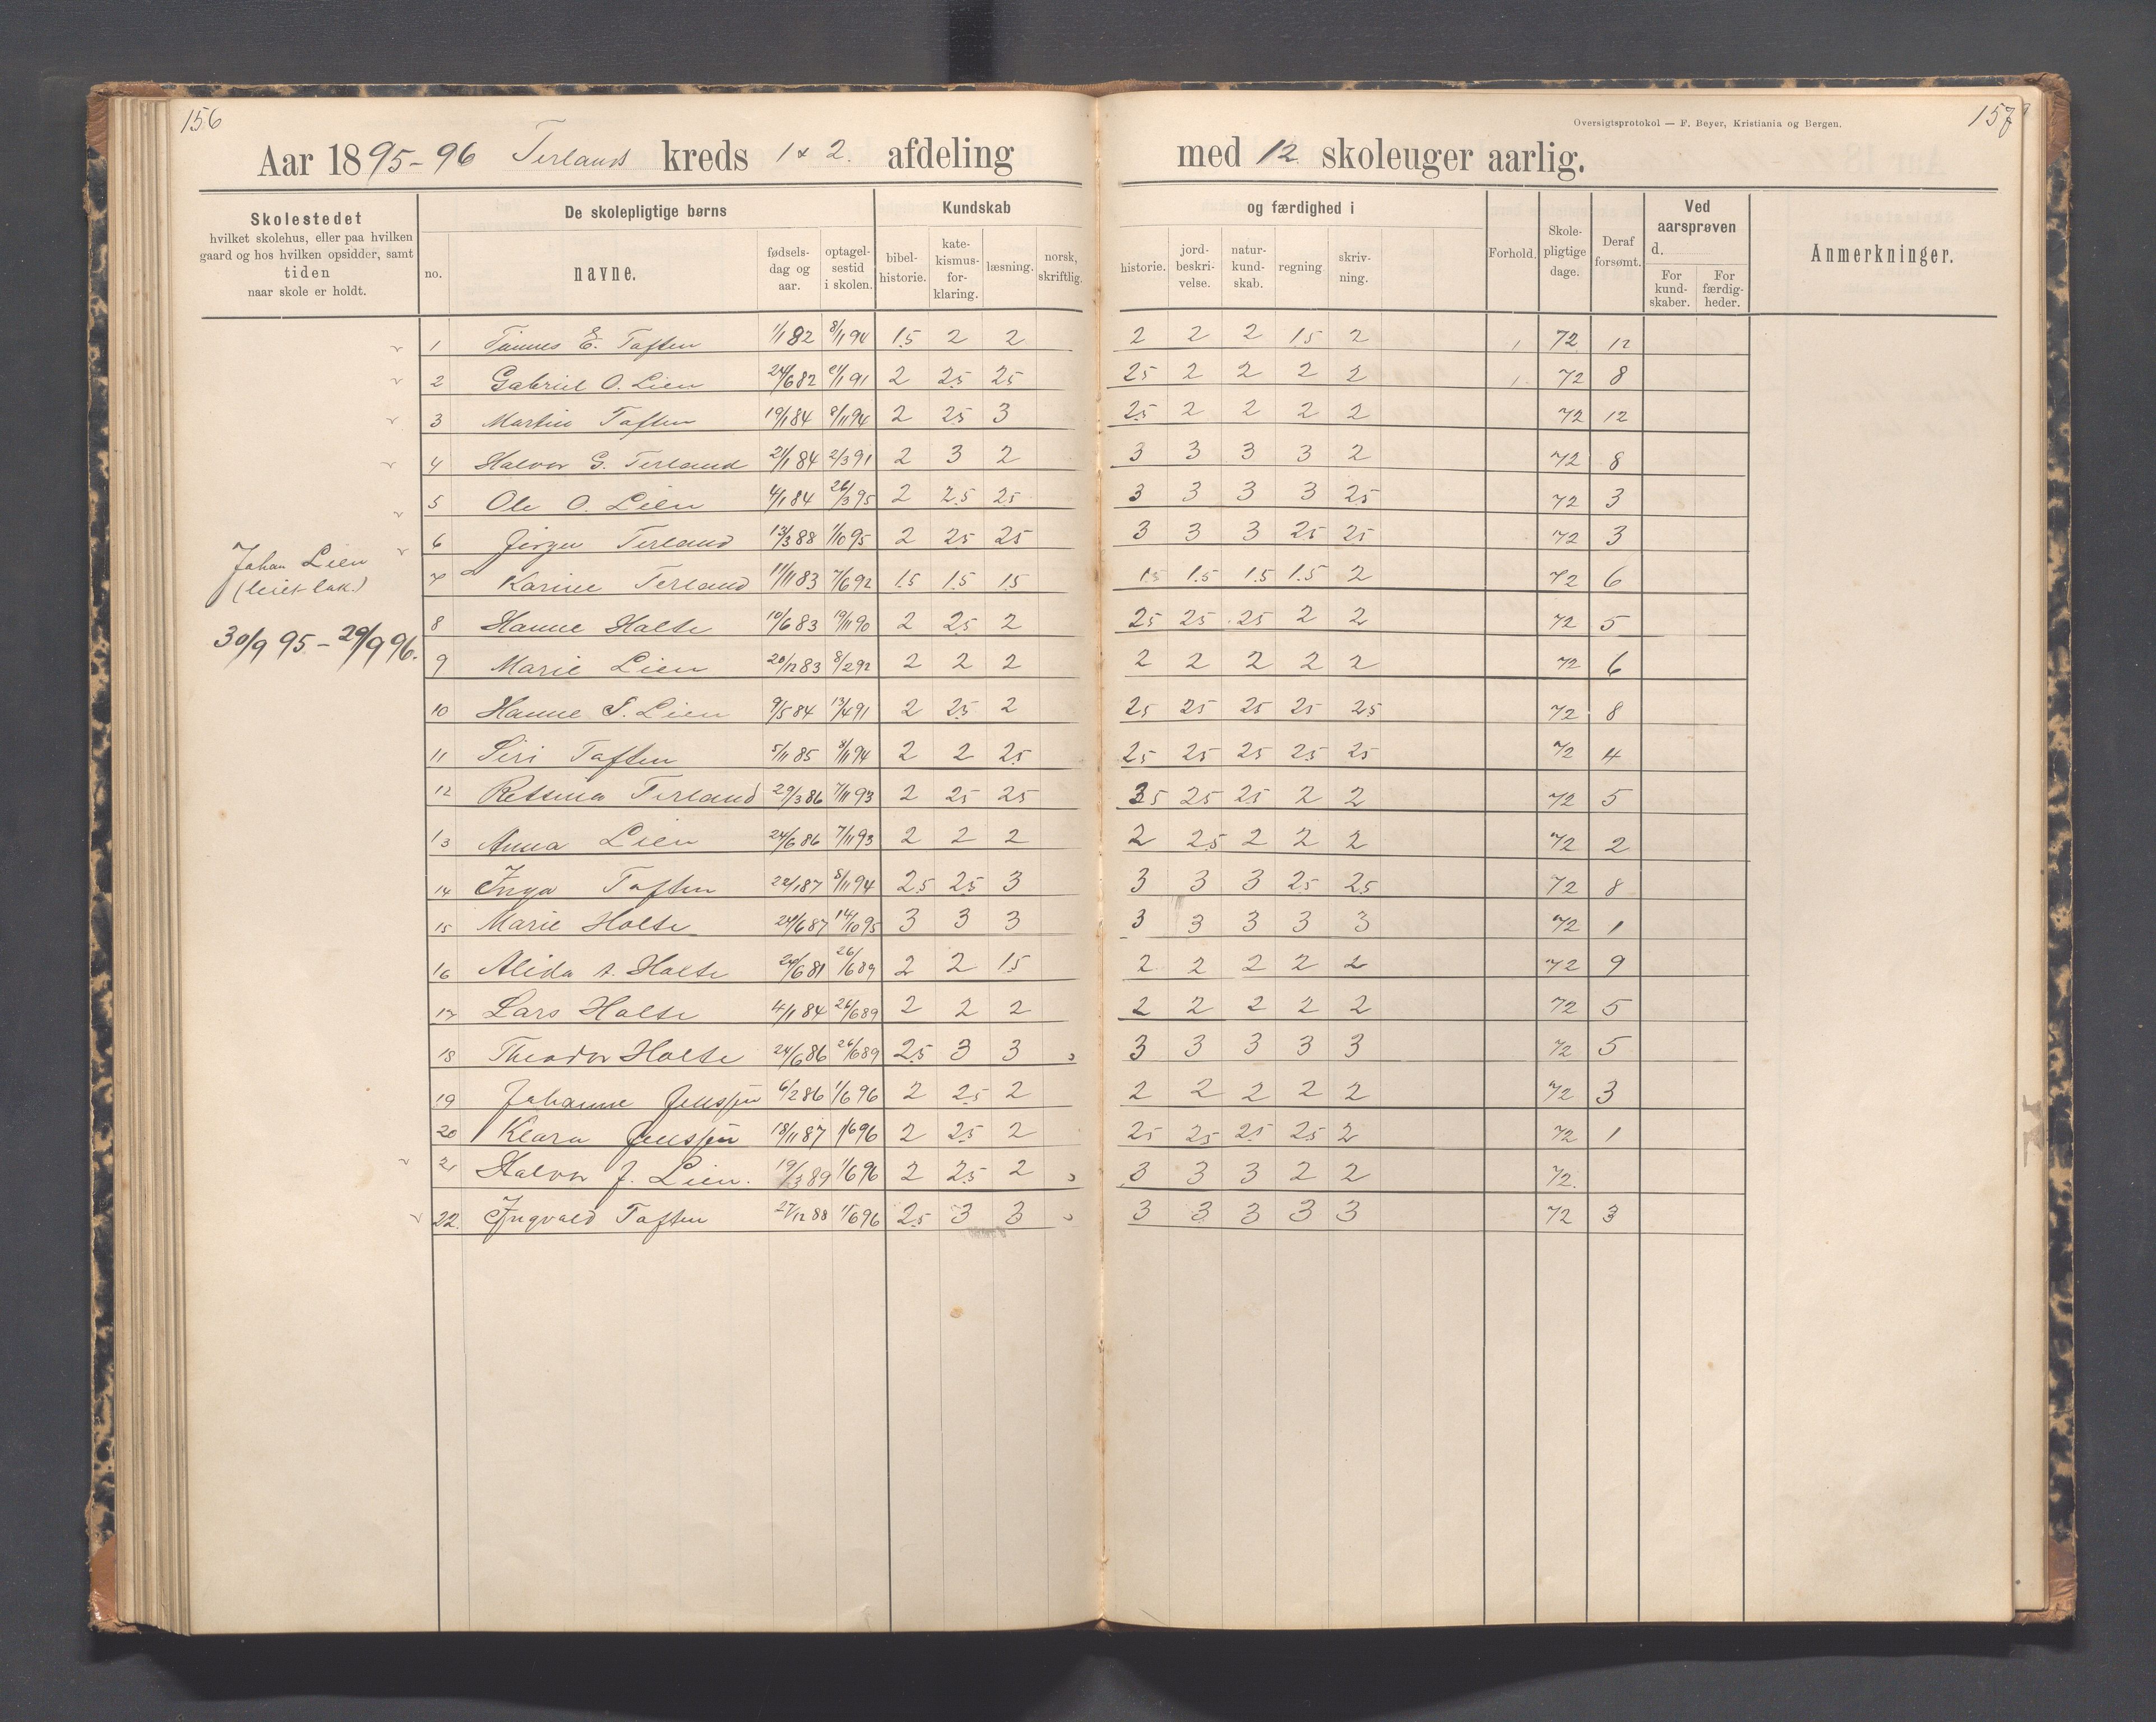 156
157
Oversigtsprotokol — F. Beyer, Kristiania og Bergen.
Aar 1895-96 Terland kreds 1 & 2. afdeling med 12 skoleuger aarlig.
Skolestedet hvilket skolehus, eller paa hvilken gaard og hos hvilken opsidder, samt tiden naar skole er holdt.
De skolepligtige børns
no. navne. fødselsdag og aar. optagelsestid i skolen.
Kundskab og færdighed i
bibelhistorie. katekismusforklaring. læsning. norsk, skriftlig. historie. jordbeskrivelse. naturkundskab. regning skrivning.
Forhold. Skolepligtige dage. Deraf forsømt.
Ved aarsprøven d.
For kundskaber. For færdigheder.
Anmerkninger.
Johan Lien
(leiet lok.)
30/9 95 - 29/9 96.
1 Tønnes E. Taften 1/1 82 8/11 94 1.5 2 2 2 2 2 1.5 2 1 72 12
2 Gabriel O. Lien 24/6 82 91 2 2.5 2.5 2.5 2 2 2 2 1 72 8
3 Martin Taften 19/1 84 8/11 94 2 2.5 3 2.5 2 2 2 2 72 12
4 Halvor G. Terland 21/1 84 2/3 91 2 3 2 3 3 3 3 2 72 8
5 Ole O. Lien 4/1 84 26/3 95 2 2.5 2.5 3 3 3 3 2.5 72 3
6 Jørgen Terland 13/3 88 1/10 95 2 2.5 2.5 3 3 3 2.5 2.5 72 3
7 Karine Terland 11/11 83 7/6 92 1.5 1.5 1.5 1.5 1.5 1.5 1.5 2 72 6
8 Hanne Holte 10/6 83 19/11 90 2 2.5 2 2.5 2.5 2.5 2 2 72 5
9 Marie Lien 20/12 83 8/2 92 2 2 2 2 2 2 2 2 72 6
10 Hanne S. Lien 9/5 84 13/4 91 2 2.5 2 2.5 2.5 2.5 2.5 2.5 72 8
11 Siri Taften 5/11 85 8/11 94 2 2 2.5 2.5 2.5 2.5 2.5 2.5 72 4
12 Terland 29/3 86 7/11 93 2 2.5 2.5 2.5 2.5 2 2 72 5
13 Anna Lien 24/6 86 7/11 93 2 2 2 2 2.5 2 2 2 72 2
14 Inga Taften 22/1 87 8/11 94 2.5 2.5 3 3 3 3 2.5 2.5 72 8
15 Marie Holte 24/6 87 14/10 95 3 3 3 3 3 3 3 3 72 1
16 Alida A. Holte 24/6 81 26/6 89 2 2 1.5 2 2 2 2 2 72 9
17 Lars Holte 4/1 84 26/6 89 2 2 2 2 2 2 2 2 72 5
18 Theodor Holte 24/6 86 26/6 89 2.5 3 3 3 3 3 3 3 3 72 5
19 Johanne Jenssen 6/2 86 1/6 96 2 2.5 2 2 2 2 2 2 72 3
20 Klara Jenssen 18/11 87 1/6 96 2 2.5 2 2.5 2.5 2.5 2.5 2 72 1
21 Halvor J. Lien. 19/3 89 1/6 96 2 2.5 2 3 3 3 3 2 2 72.
22. Ingvald Taften 27/12 88 1/6 96 2.5 3 3 3 3 3 3 3 3 72 3